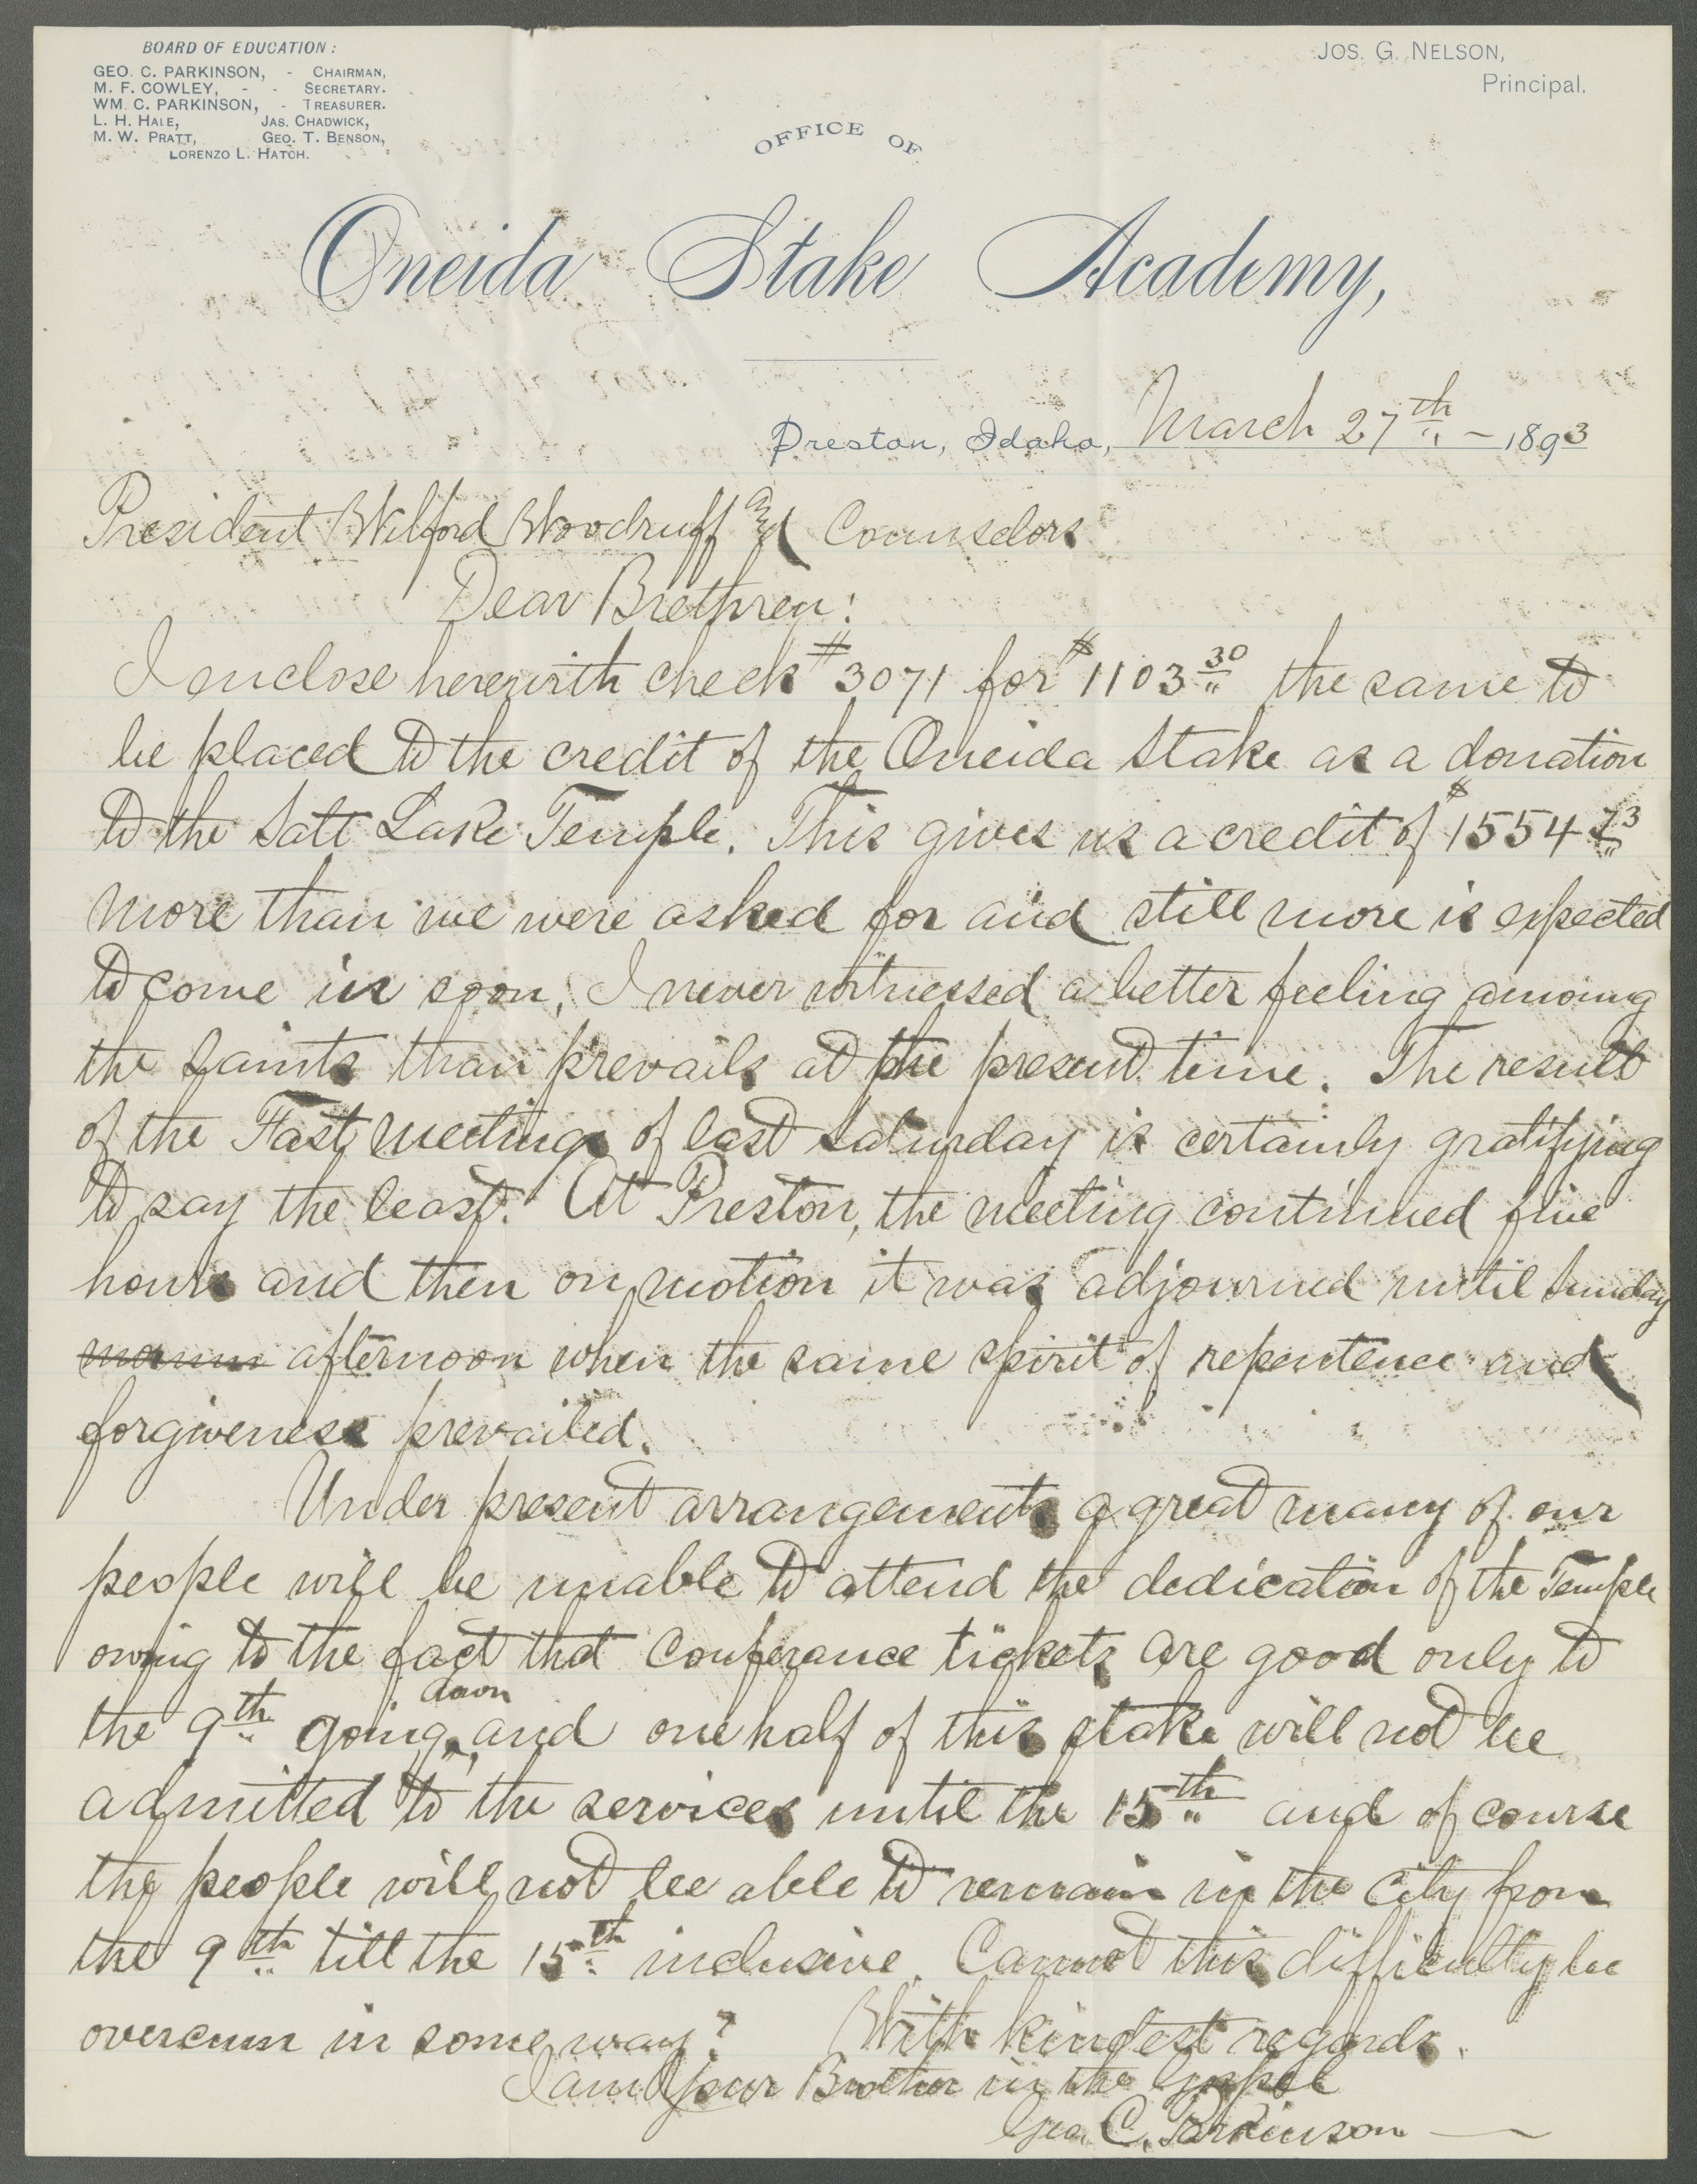 BOARD OF EDUCATION:
GEO. C. PARKINSON, - CHAIRMAN,
M. F. COWLEY, - - SECRETARY.
WM. C. PARKINSON, - TREASURER.
L. H. HALE, JAS. CHADWICK,
M. W. PRATT, GEO. T. BENSON,
LORENZO L. HATCH.
JOS. G. NELSON,
Principal.
OFFICE OF
Oneida Stake Academy,
Preston, Idaho, March 27th - 1893
President Wilford Woodruff and Counselors
Dear Brethren:
I enclose herewith check #3071 for $1103 30 the same to
be placed to the credit of the Oneida Stake as a donation
to the Salt Lake Temple. This gives us a credit of $1554
more than we were asked for and still more is expected
to come in soon. I never witnessed a better feeling among
the saints than prevails at the present time. The result
of the Fast meetings of last Saturday is certainly gratifying
to say the least. At Preston, the meeting continued five
hours and then on motion it was adjourned until Sunday
mornin afternoon when the same spirit of repentence and
forgiveness prevailed.
Under present arrangements a great many of our
people will be unable to attend the dedication of the Temple
owing to the fact that Conferance tickets are good only to
the 9th going down and one half of this stake will not be
admitted to the services until the 15th and of course
the people will not be able to remain in the city from
the 9th till the 15th inclusive. Cannot this difficulty be
overcum in some way? With kindest regards.
I am Your Brother in the Gospel
Geo. C. Parkinson